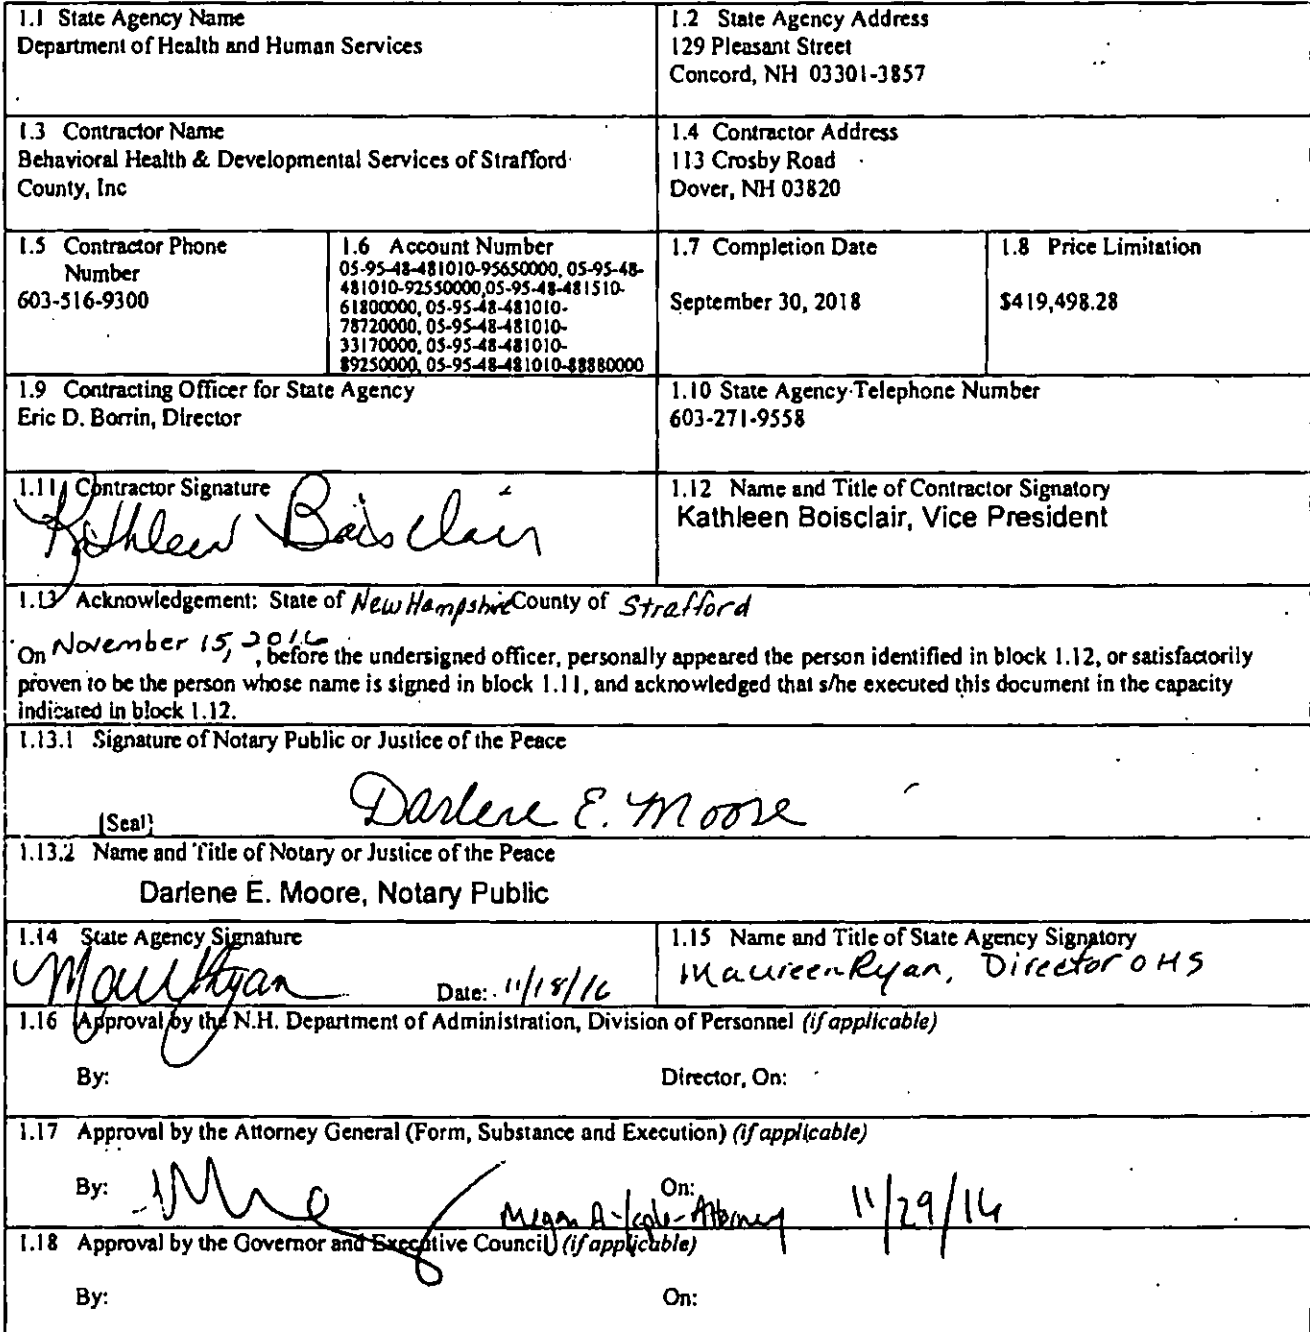 1.1 State Agency Name
Department of Health and Human Services
1.2 State Agency Address
129 Pleasant Street
Concord, NH 03301-3857
1.3 Contractor Name
Behavioral Health & Developmental Services of Strafford
County, Inc
1.4 Contractor Address
113 Crosby Road
Dover, NH 03820
1.5 Contractor Phone
Number
603-516-9300
1.6 Account Number
05-95-48-481010-95650000, 05-95-48-
481010-92550000,05-95-48-481510-
61800000, 05-95-48-481010-
78720000, 05-95-48-481010-
33170000, 05-95-48-481010-
89250000, 05-95-48-481010-88880000
1.7 Completion Date
September 30, 2018
1.8 Price Limitation
$419,498.28
1.9 Contracting Officer for State Agency
Eric D. Borrin, Director
1.10 State Agency Telephone Number
603-271-9558
1.11 Contractor Signature
Kathleen Boisclair
1.12 Name and Title of Contractor Signatory
Kathleen Boisclair, Vice President
1.13 Acknowledgement: State of New Hampshire County of Strafford
On November 15, 2016, before the undersigned officer, personally appeared the person identified in block 1.12, or satisfactorily
proven to be the person whose name is signed in block 1.11, and acknowledged that s/he executed this document in the capacity
indicated in block 1.12.
1.13.1 Signature of Notary Public or Justice of the Peace
Darlene E. Moore
[Seal]
1.13.2 Name and Title of Notary or Justice of the Peace
Darlene E. Moore, Notary Public
1.14 State Agency Signature
Date: 11/18/16
1.15 Name and Title of State Agency Signatory
Maureen Ryan, Director OHS
1.16 Approval by the N.H. Department of Administration, Division of Personnel (if applicable)
By: Director, On:
1.17 Approval by the Attorney General (Form, Substance and Execution) (if applicable)
By: On: Megan A. - Attorney 11/29/16
1.18 Approval by the Governor and Executive Council (if applicable)
By: On: